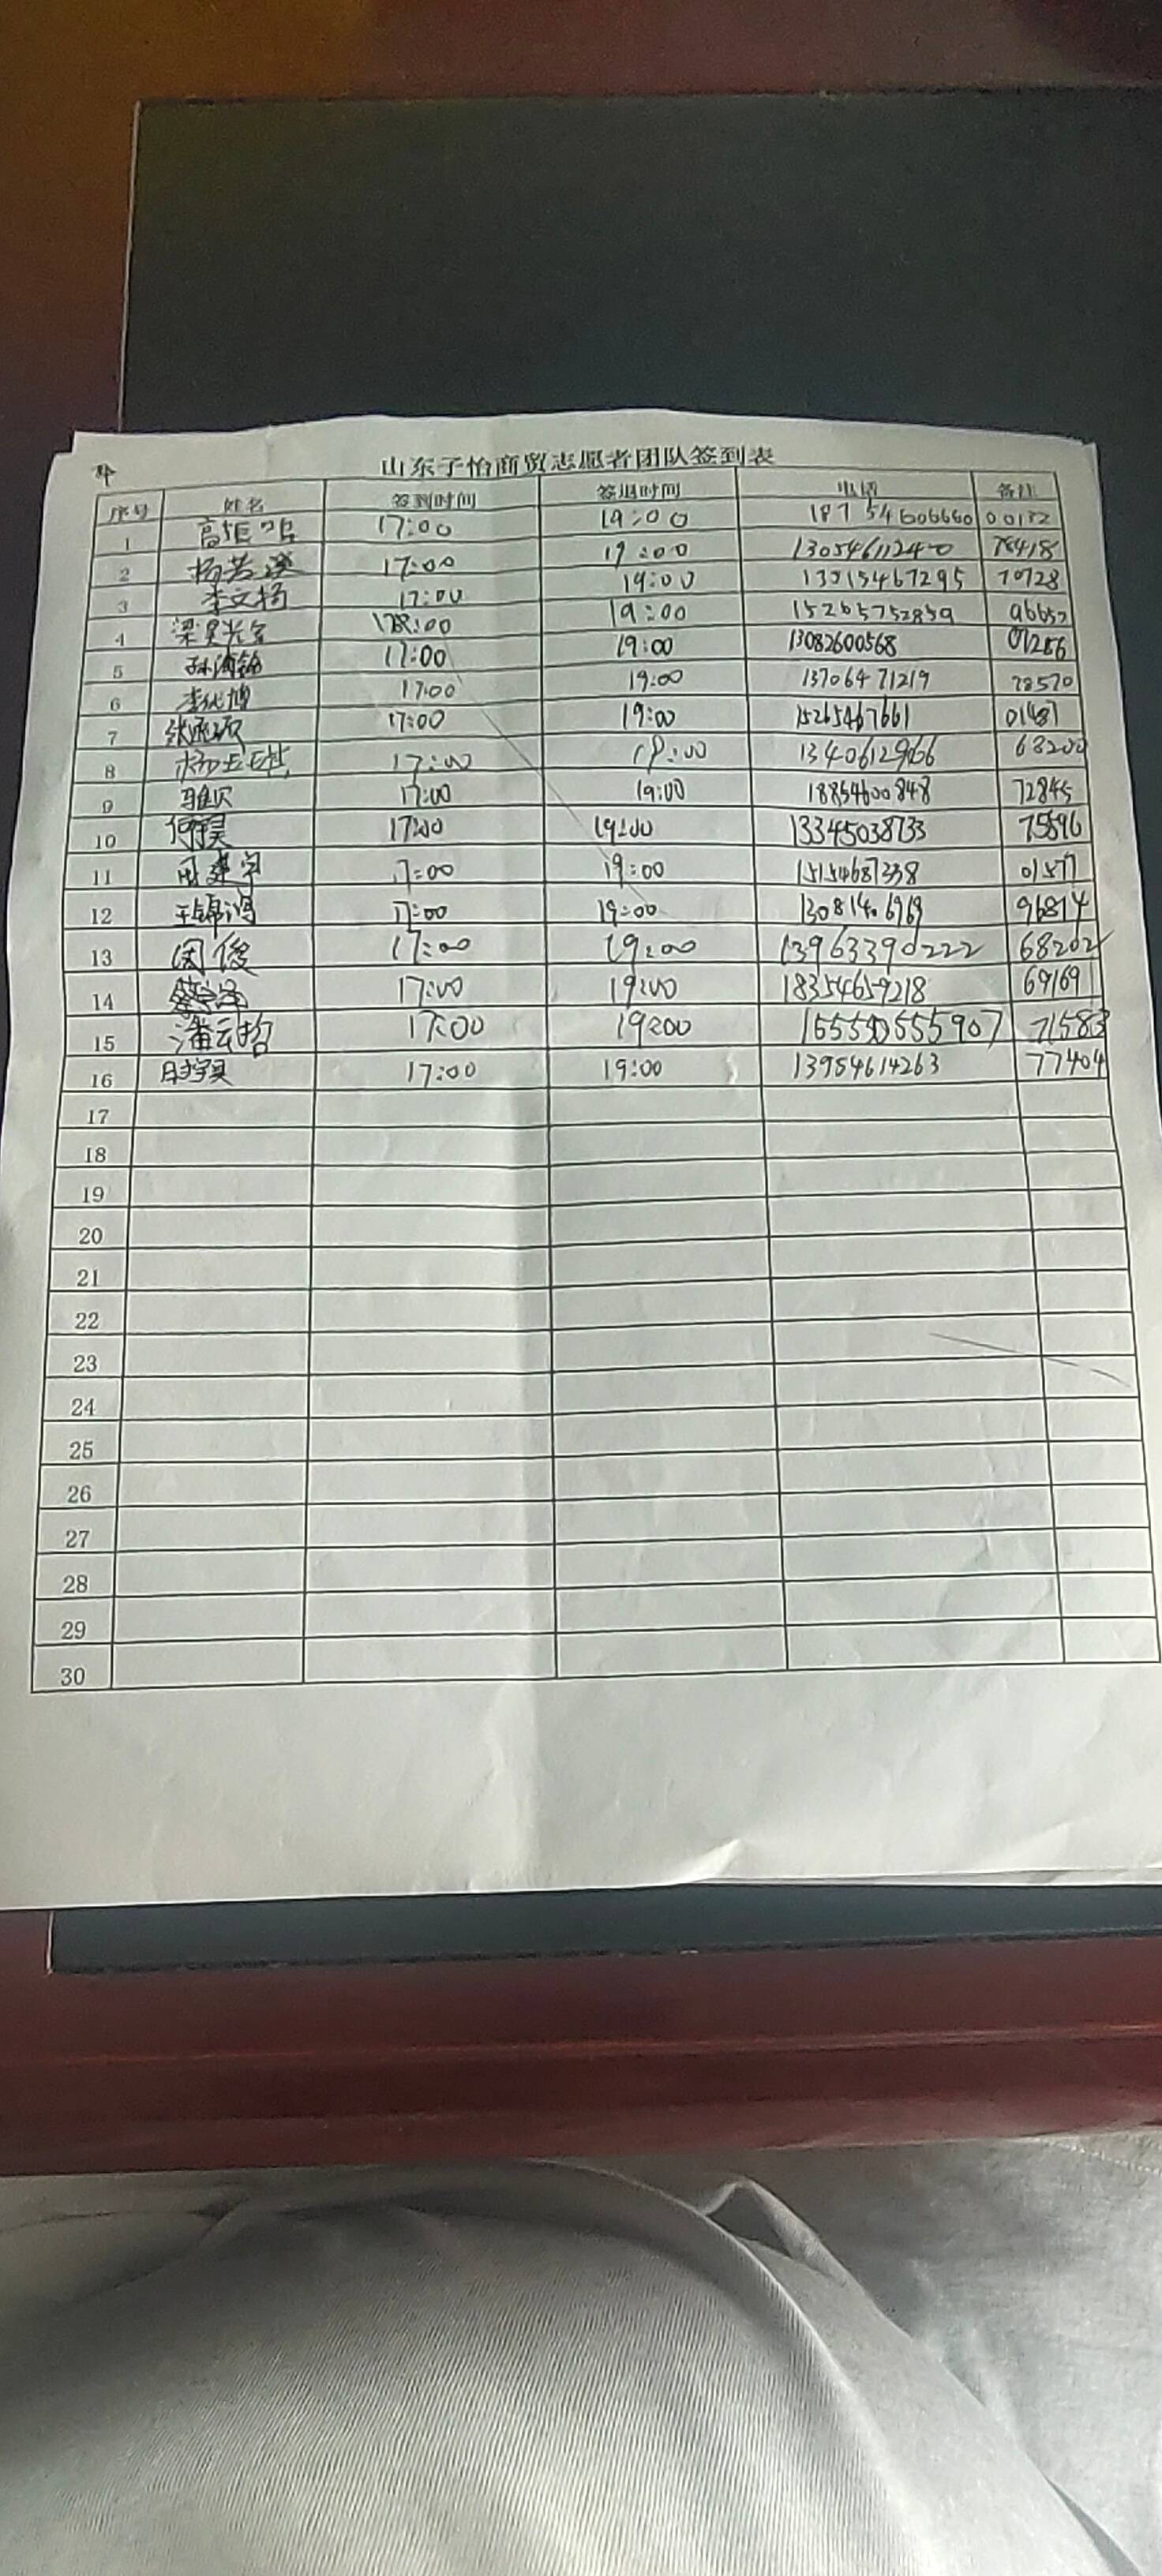 山东子怡商贸志愿者团队签到表
序号 姓名 签到时间 签退时间 电话 备注
1 17:00 19:00 18754606660 00132
2 17:00 19:00 13054611240 78418
3 李文杨 17:00 19:00 13015467295 70728
4 19:00 15265752859 96652
5 17:00 19:00 13082600568 01256
6 17:00 19:00 13706471219 78570
7 17:00 19:00 15265467661 01487
8 17:00 19:00 13406129666 68200
9 17:00 19:00 18854600848 72845
10 17:00 19:00 13345038733 75896
11 17:00 19:00 15154687338 01577
12 王锦鸿 17:00 19:00 13081406969 96874
13 闵俊 17:00 19:00 13963390222 68202
14 17:00 19:00 18354659218 69169
15 潘云哲 17:00 19:00 71583
16 17:00 19:00 13954614263 77404
17
18
19
20
21
22
23
24
25
26
27
28
29
30